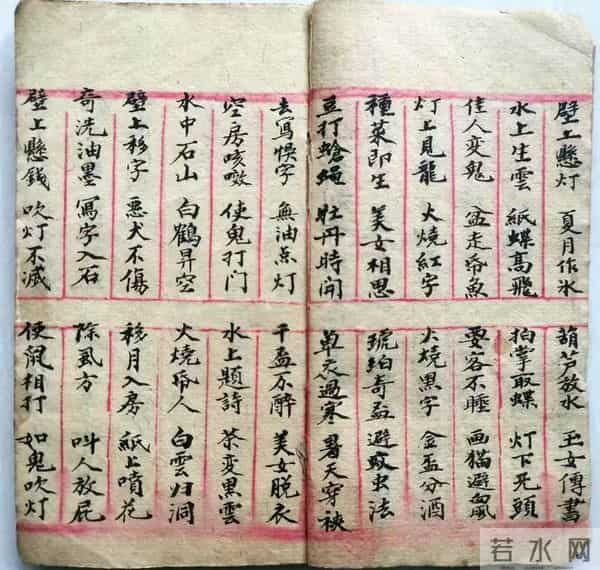 壁上懸灯 夏月作氷 葫芦放水 玉女傳書
水上生雲 紙蝶高飛 拍掌取蝶 灯下无頭
佳人变鬼 盆走魚 要客不睡 画猫避鼠
灯上見龍 火燒紅字 火燒黑字 金盃分酒
種菜即生 美女相思 琥珀奇盃 避蚊虫法
豆打蒼蠅 牡丹時開 天過寒 暑天穿
去寫悞字 無油点灯 千盃不醉 美女脱衣
空房咳嗽 使鬼打门 水上題詩 茶变黑雲
水中石山 白鶴昇空 火燒人 白雲归洞
壁上移字 悪犬不傷 移月入房 紙上噴花
奇洗油墨 寫字入石 除虱方 叫人放屁
壁上懸錢 吹灯不滅 使鼠相打 如鬼吹灯
若水网